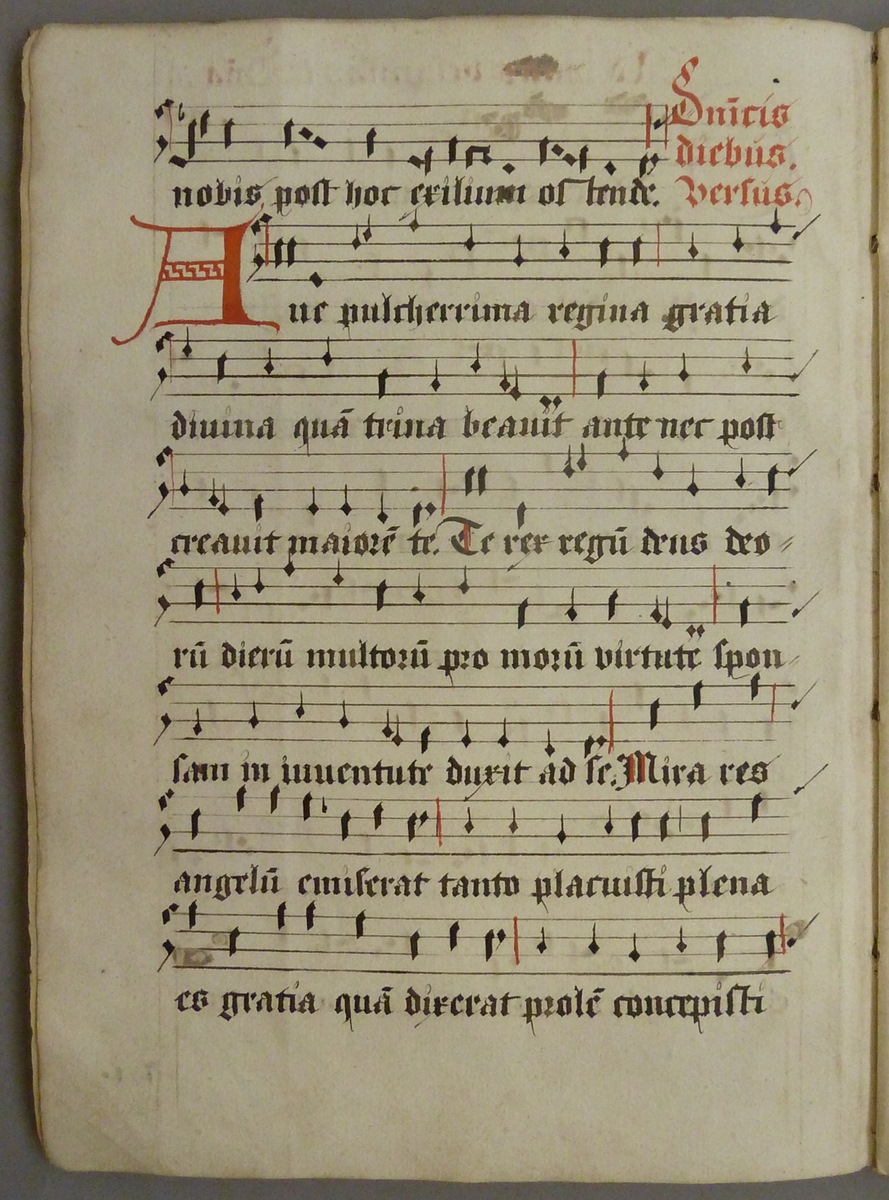 Dnīcis
diebus.
nobis post hoc exilium ostende. Versus.
Aue pulcherrima regina gratia
diuina quā trina beauit ante nec post
creauit maiorē te. Te rex regū deus deo-
rū dierū multorū pro morū virtute spon-
sam in iuuentute duxit ad se. Mira res
angelū emiserat tanto placuisti plena
es gratia quā dixerat prolē concepisti